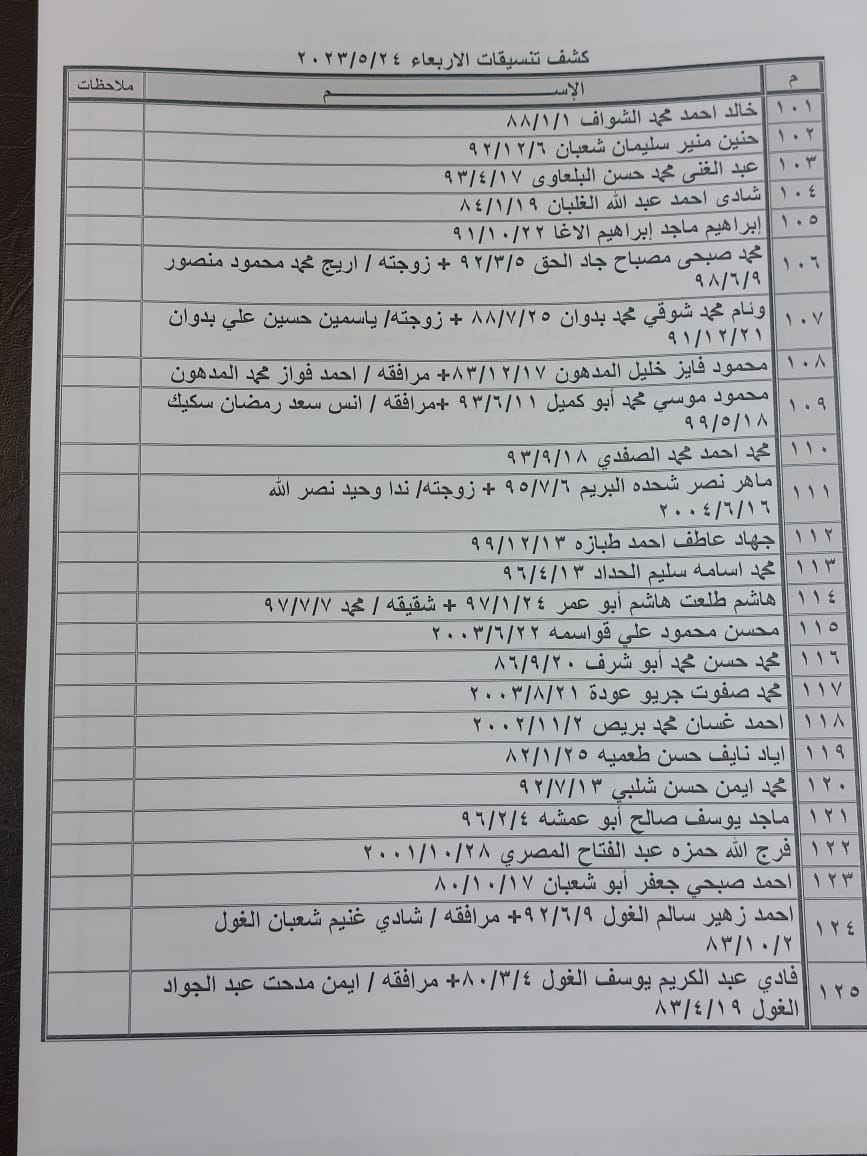 كشف تنسيقات الاربعاء ٢٠٢٣/٥/٢٤
م الإســــم ملاحظات
١٠١ خالد احمد محمد الشواف ٨٨/١/١
١٠٢ حنين منير سليمان شعبان ٩٢/١٢/٦
١٠٣ عبد الغنى محمد حسن البلعاوى ٩٣/٤/١٧
١٠٤ شادى احمد عبد الله الغلبان ٨٤/١/١٩
١٠٥ إبراهيم ماجد إبراهيم الاغا ٩١/١٠/٢٢
١٠٦ محمد صبحى مصباح جاد الحق ٩٢/٣/٥ + زوجته / اريج محمد محمود منصور
٩٨/٦/٩
١٠٧ وئام محمد شوقي محمد بدوان ٨٨/٧/٢٥ + زوجته/ ياسمين حسين علي بدوان
٩١/١٢/٢١
١٠٨ محمود فايز خليل المدهون ٨٣/١٢/١٧+ مرافقه / احمد فواز محمد المدهون
١٠٩ محمود موسي محمد أبو كميل ٩٣/٦/١١ +مرافقه / انس سعد رمضان سكيك
٩٩/٥/١٨
١١٠ محمد احمد محمد الصفدي ٩٣/٩/١٨
١١١ ماهر نصر شحده البريم ٩٥/٧/٦ + زوجته/ ندا وحيد نصر الله
٢٠٠٤/٦/١٦
١١٢ جهاد عاطف احمد طبازه ٩٩/١٢/١٣
١١٣ محمد اسامه سليم الحداد ٩٦/٤/١٣
١١٤ هاشم طلعت هاشم أبو عمر ٩٧/١/٢٤ + شقيقه / محمد ٩٧/٧/٧
١١٥ محسن محمود علي قواسمه ٢٠٠٣/٦/٢٢
١١٦ محمد حسن محمد أبو شرف ٨٦/٩/٢٠
١١٧ محمد صفوت جريو عودة ٢٠٠٣/٨/٢١
١١٨ احمد غسان محمد بريص ٢٠٠٢/١١/٢
١١٩ اياد نايف حسن طعميه ٨٢/١/٢٥
١٢٠ محمد ايمن حسن شلبي ٩٢/٧/١٣
١٢١ ماجد يوسف صالح أبو عمشه ٩٦/٢/٤
١٢٢ فرج الله حمزه عبد الفتاح المصري ٢٠٠١/١٠/٢٨
١٢٣ احمد صبحي جعفر أبو شعبان ٨٠/١٠/١٧
١٢٤ احمد زهير سالم الغول ٩٢/٦/٩+ مرافقه / شادي غنيم شعبان الغول
٨٣/١٠/٢
١٢٥ فادي عبد الكريم يوسف الغول ٨٠/٣/٤+ مرافقه / ايمن مدحت عبد الجواد
الغول ٨٣/٤/١٩